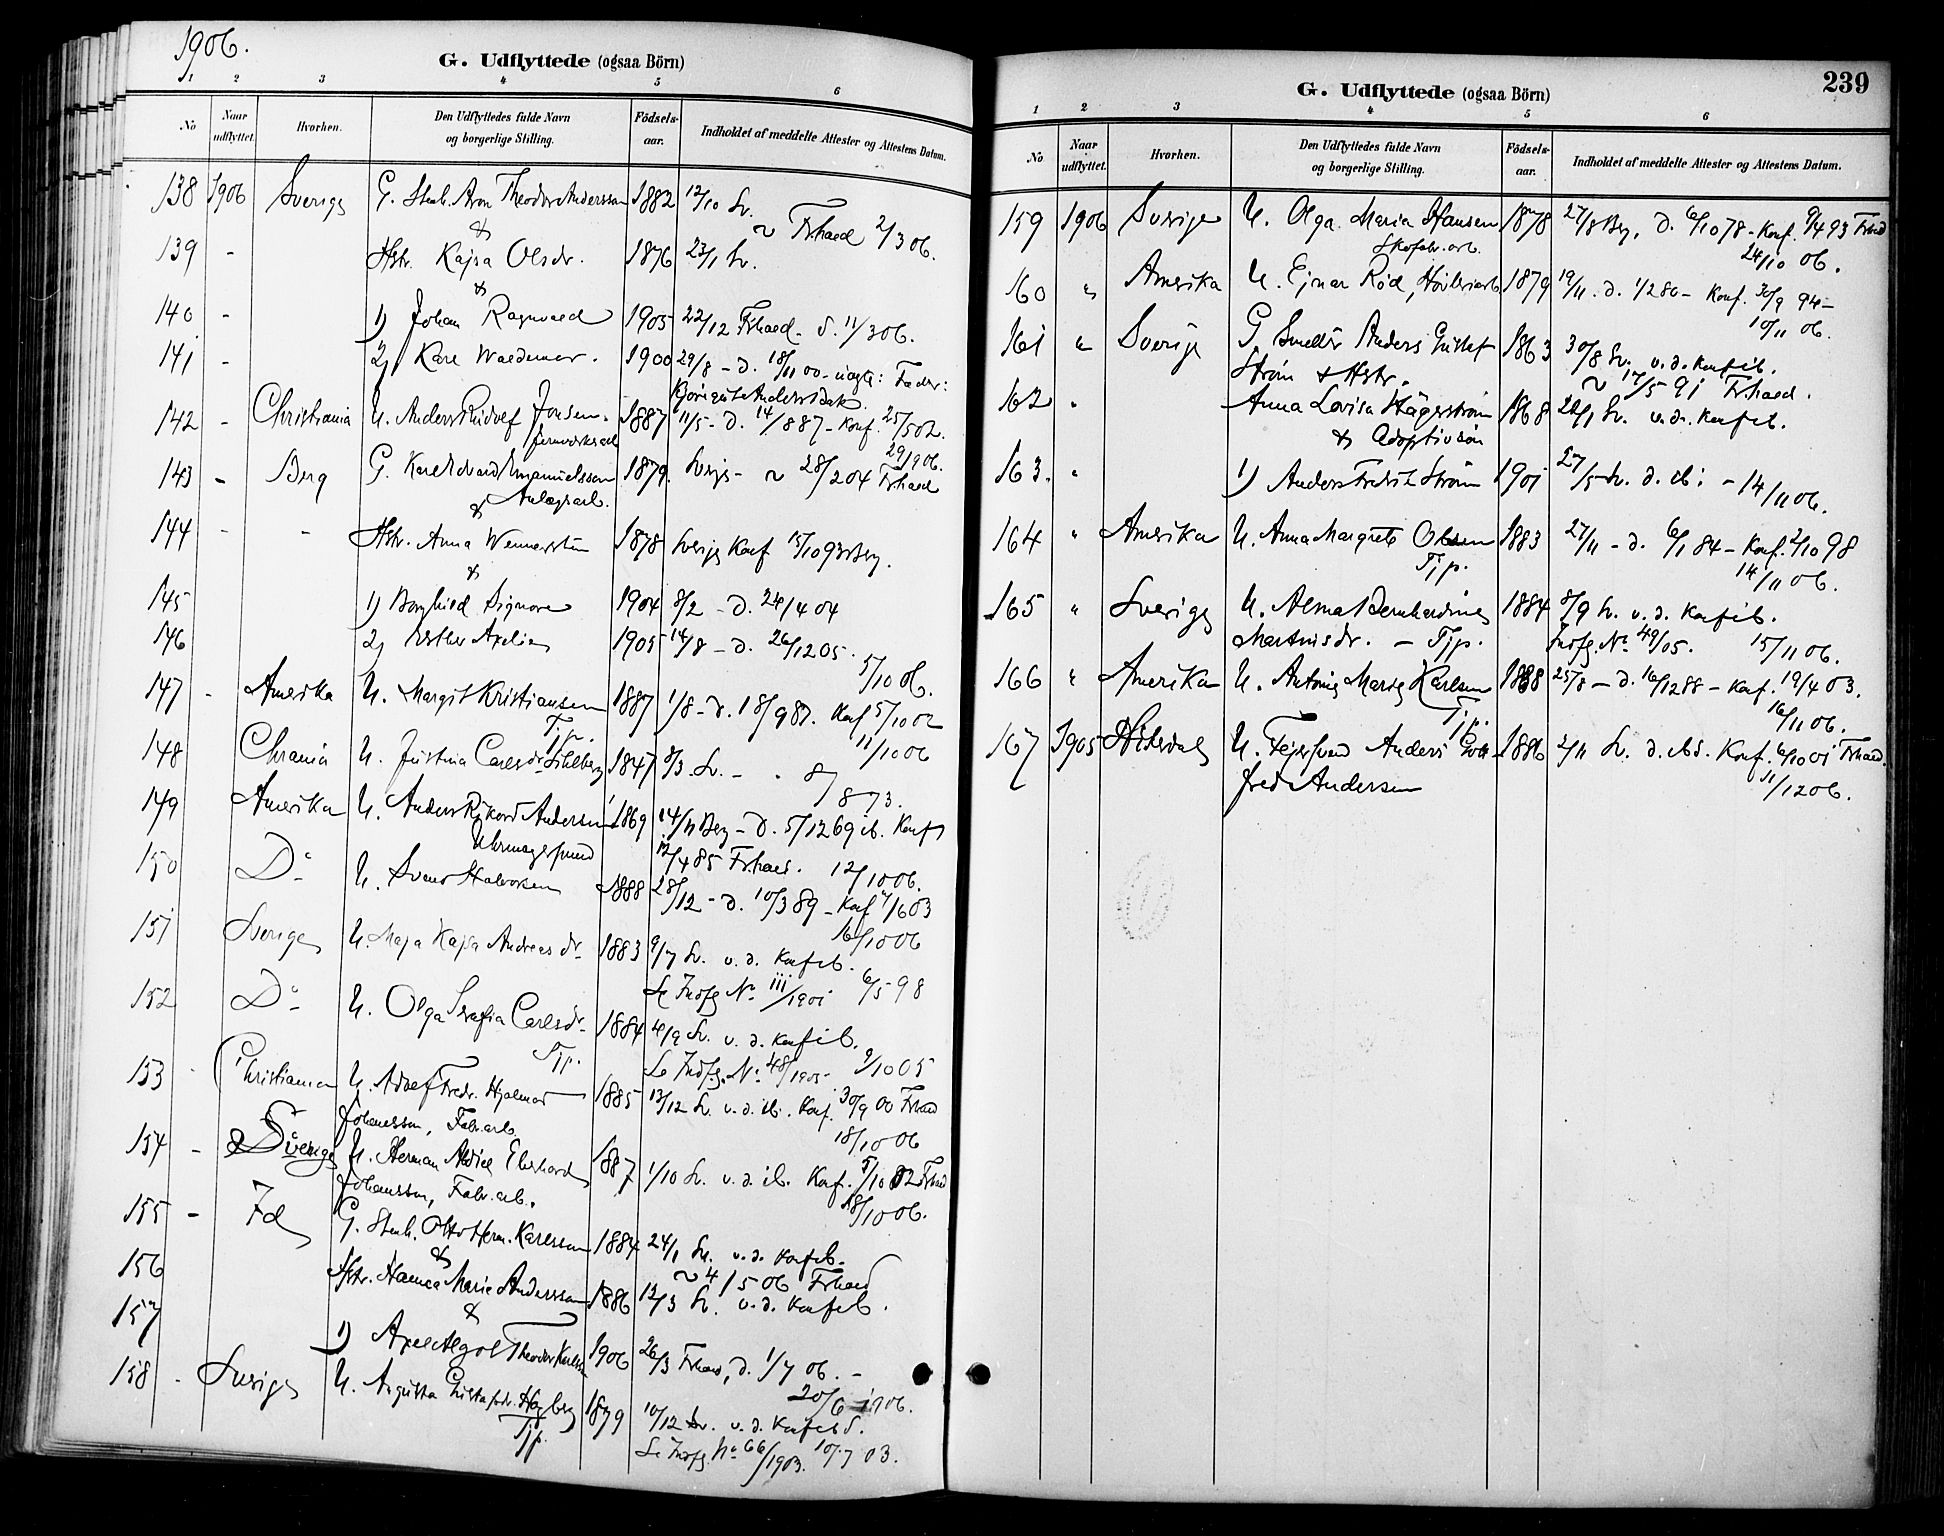 1906.
G. Udflyttede (ogsaa Börn)
1 2 3 4 5 6
No Naar udflyttet. Hvorhen. Den Udflyttedes fulde Navn og borgerlige Stilling. Födsels-aar. Indholdet af meddelte Attester og Attestens Datum.
138 1906 Sverige G. Stenh. Aron Theodor Andersson 1882 12/10 Sv.
& ~ Frhald 2/3 06.
139 - Hstr. Kajsa Olsdr. 1876 23/1 Sv.
&
140 - 1) Johan Ragnvald 1905 22/12 Frhald - d. 11/3 06.
141 - 2) Karl Waldemar. 1900 29/8 - d. 18/11 00 - uægte: Fader:
142 - Christiania U. Anders Rudolf Jonsen 1887 11/5 - d. 14/8 87 - Konf. 25/5 02.
29/9 06.
143 - Berg G. Karl Edvard Emanuelsson 1879. Sverige - ~ 28/2 04 Frhald
Anlægsarb.
&
144 - - Hstr. Anna Wennerström 1878 Sverige Konf 15/10 93 Berg.
&
145 1) Borghild Signora 1904 8/2 - d. 24/4 04
146 2) Esther Axelia 1905 14/8 - d. 26/12 05.
5/10 06.
147 - Amerika U. Margit Kristiansen 1887 1/8 - d. 18/9 87. Konf 5/10 02
Tjp. 11/10 06
148 Chrania U. Justina Carlsdr. 1847 8/3 Sv. -
8/8 73.
149 Amerika U. Anders Rikard Andersen 1869 14/11 Berg - d. 5/12 69 ib. Konf
Uhrmagersvend 12/4 85 Frhald. 12/10 06.
150 Do U. Svend Halvorsen 1888 28/12 - d. 10/3 89 - Konf 7/6 03
16/10 06
151 Sverige U. Maja Kajsa Andreasdr. 1883 9/7 Sv. u. d. Konf ib.
Se Indfg No 111/1901 6/5 98
152 Do U. Olga Serafia Carlsdr. 1884 4/9 Sv. u. d. Konf ib.
Tjp. Se Indfg. No 48/1905. 9/10 05
153 Christiania U. Adolf Fredr. Hjalmar 1885 13/12 Sv. u. d. ib. Konf. 30/9 00 Frhald
Johansson, Fabr.arb. 18/10 06
154 - Sverige U. Herman Eberhard 1887 1/10 Sv. u. d. ib. Konf. 5/10 02 Frhald
Johansson, Fabr.arb. 18/10 06.
155 - Id G. Stenh. Otto Herm. Karlsson 1884 24/1 Sv. u. d. Konf ib.
& ~ 4/5 06 Frhald
156 Hstr. Hanna Marie Andersson 1886 12/3 Sv. u. d. Konf ib.
&
157 1) Axel Algot Theodor Karlsen 1906 26/3 Frhald, d. 1/7 06. -
20/6 1906.
158 - Sverige U. Augusta Gustafsdr. Hagberg 1879 10/12 Sv. u. d. Konf ib d.
Tjp. Se Indfg. No 66/1903. 10/7 03.
239
G. Udflyttede (ogsaa Börn)
1 2 3 4 5 6
No Naar udflyttet. Hvorhen. Den Udflyttedes fulde Navn og borgerlige Stilling. Födsels-aar. Indholdet af meddelte Attester og Attestens Datum.
159 1906 Sverige U. Olga Maria Hansen 1878 27/8 Berg, d. 6/10 78 - Konf. 9/4 93 Frhald
Skofabr.arb. 24/10 06.
160 " Amerika U. Ejnar Röd, Hövleriarb 1879 19/11. d. 1/2 80 - Konf. 30/9 94 -
10/11 06.
161 " Sverige G Anders Gustaf 1863 30/8 Sv. u. d. Konf ib.
Ström & Hstr. ~ 17/5 91 Frhald.
162 " Anna Lovisa Hägerström 1868 22/1 Sv. u. d. Konf ib.
& Adoptivsön
163. " 1) Anders Fredrik Ström 1901 27/5 Sv. d. ib: - 14/11 06.
164 " Amerika U. Anna Margrete Olsen 1883 27/11 - d. 6/1 84 - Konf. 2/10 98
Tjp. 14/11 06.
165 " Sverige U. Alma Bernhardine 1884 8/9 Sv. u. d. Konf ib.
Martinsdr. - Tjp. Indfg. No 49/05. 15/11 06.
166 " Amerika U. Antonie Marie Karlsen 1888 25/8 - d. 16/12 88 - Konf. 19/4 03.
Tjp. 16/11 06.
167 1905 Hitterdal U. Anders Gott- 1886 2/11 Sv. d. ibd. Konf. 6/10 01 Frhald.
fred Andersen 11/12 06.